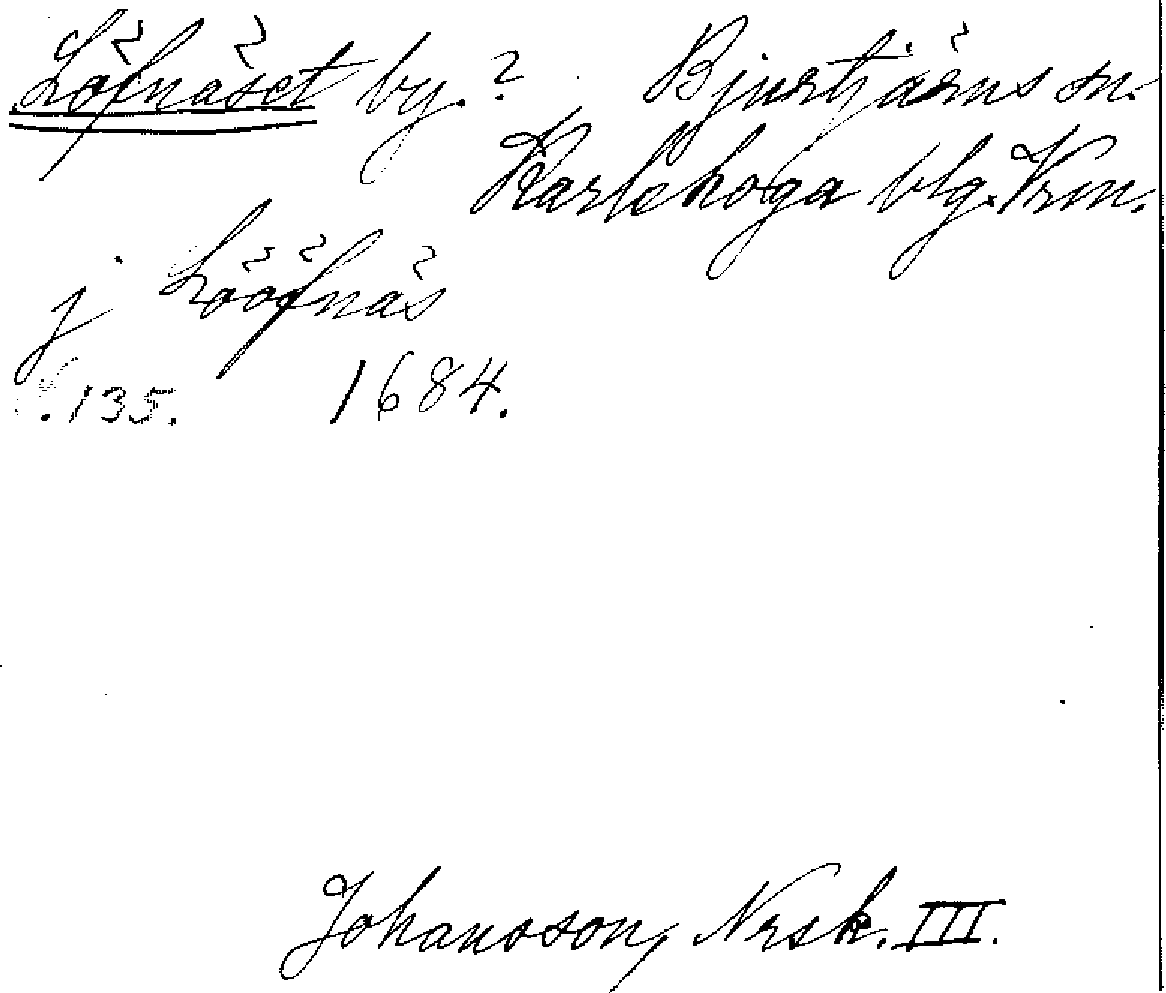 Löfnäset by. ? Bjurtjärns sn.
Karlskoga blg. Vrm.
j Löófnäs
s. 135. 1684.
Johansson, Nrsk. III.